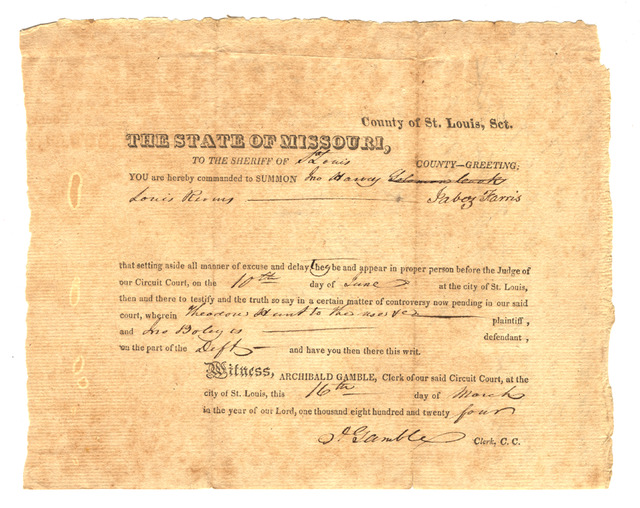 County of St. Louis, Sct.
THE STATE OF MISSOURI,
TO THE SHERIFF OF St Louis COUNTY—GREETING:
YOU are hereby commanded to SUMMON Jno Harvey Solomon Cook
Louis Jabez Farris
that setting aside all manner of excuse and delay they be and appear in proper person before the Judge of
our Circuit Court, on the 10th day of June at the city of St. Louis,
then and there to testify and the truth so say in a certain matter of controversy now pending in our said
court, wherein Theodore Hunt to the use of plaintiff,
and Jno Boley is defendant,
on the part of the Deft and have you then there this writ.
Witness, ARCHIBALD GAMBLE, Clerk of our said Circuit Court, at the
city of St. Louis, this 16th day of March
in the year of our Lord, one thousand eight hundred and twenty four
A Gamble Clerk, C. C.